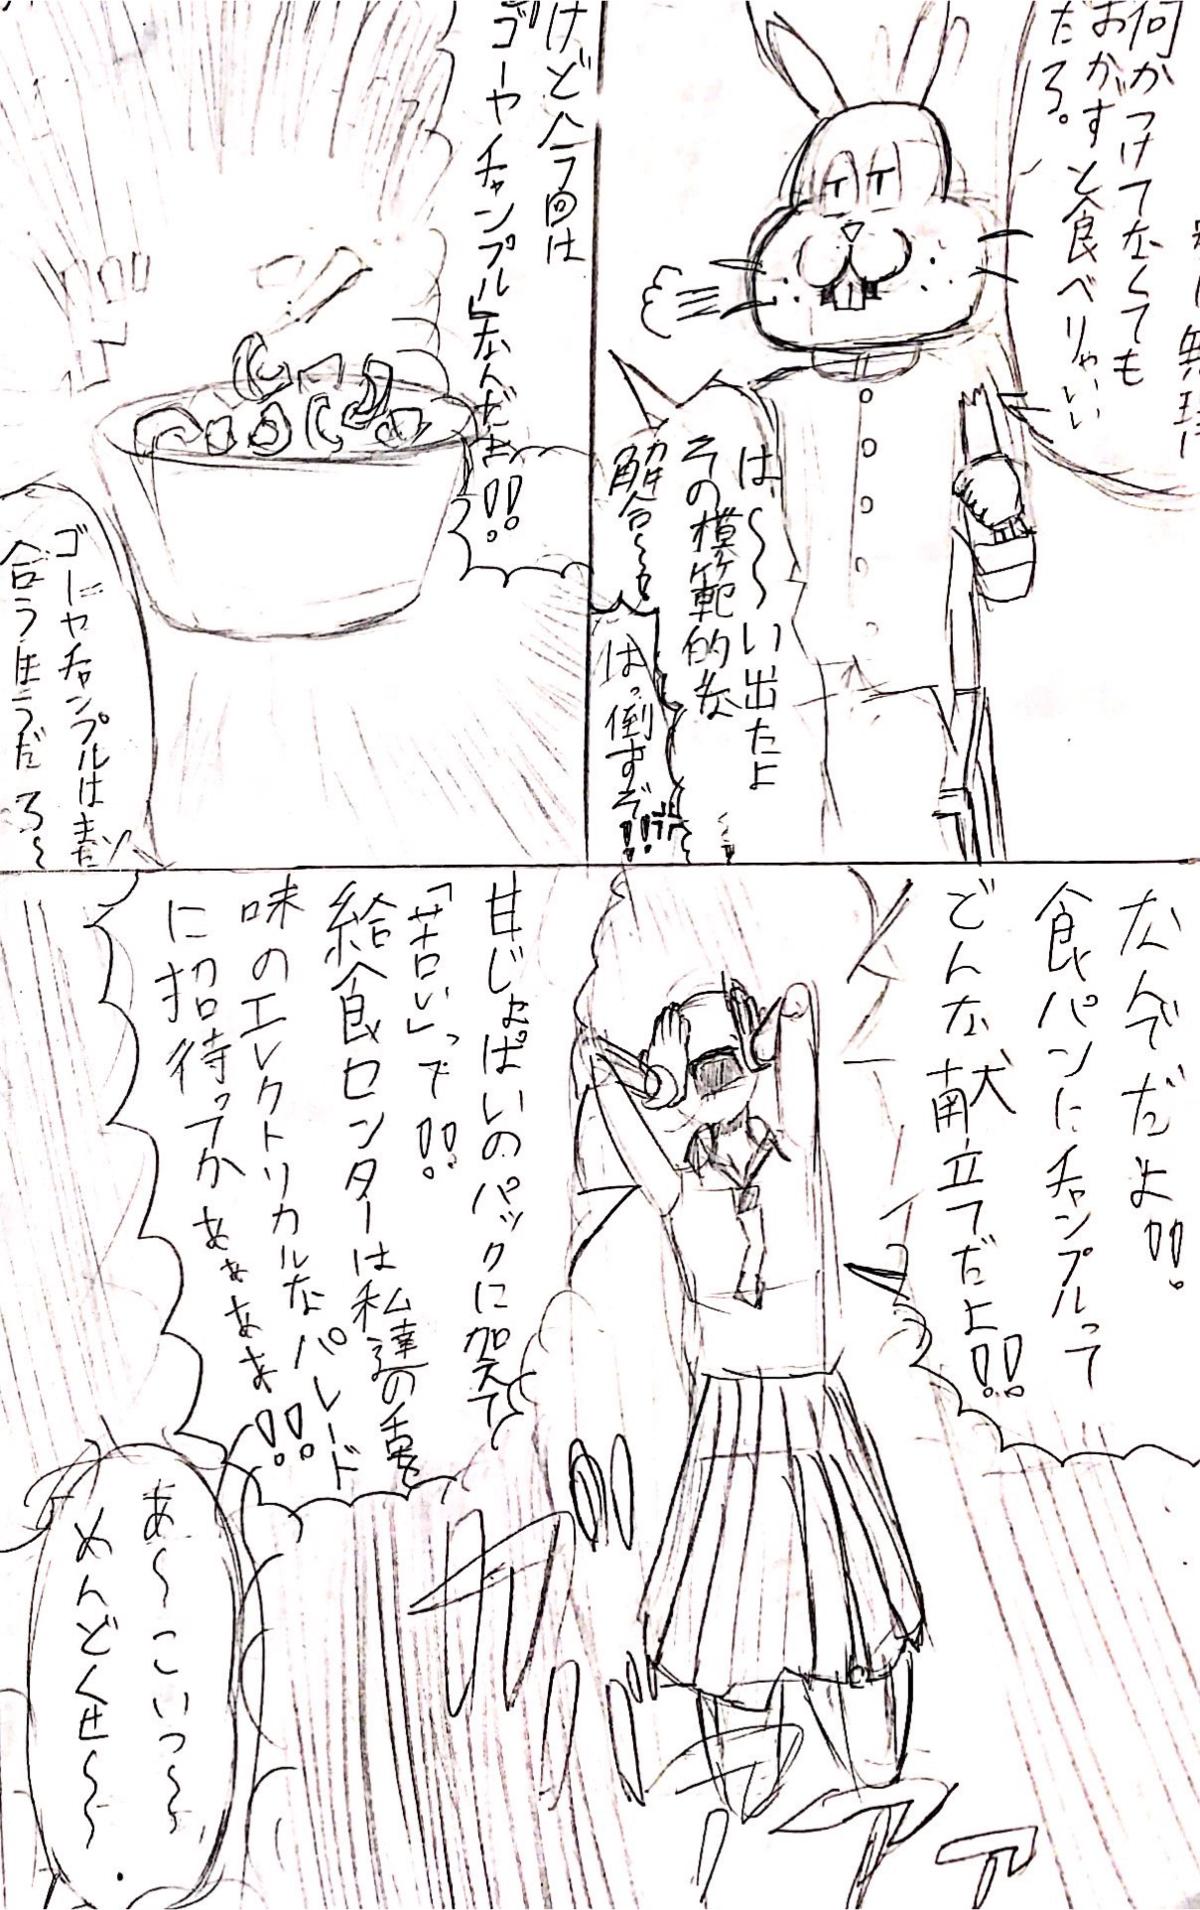 無理に
何かつけてなくても
おかずと食べりゃいい
だろ。
は、〜〜い出たよ
その模範的な
解合〜も
はっ倒すぞ!!
けど今回は
「ゴーヤチャンプル」なんだぞ!!
ゴーヤチャンプルはまだ
合うほうだろ〜
なんでだよ!!
食パンにチャンプルって
どんな献立てだよ!!
甘じょぱいのパックに加えて
「苦い」って!!
給食センターは私達の舌を
味のエレクトリカルなパレード
に招待ってかぁぁぁぁ!!
あ〜こいつ〜、
めんどくせ〜〜.